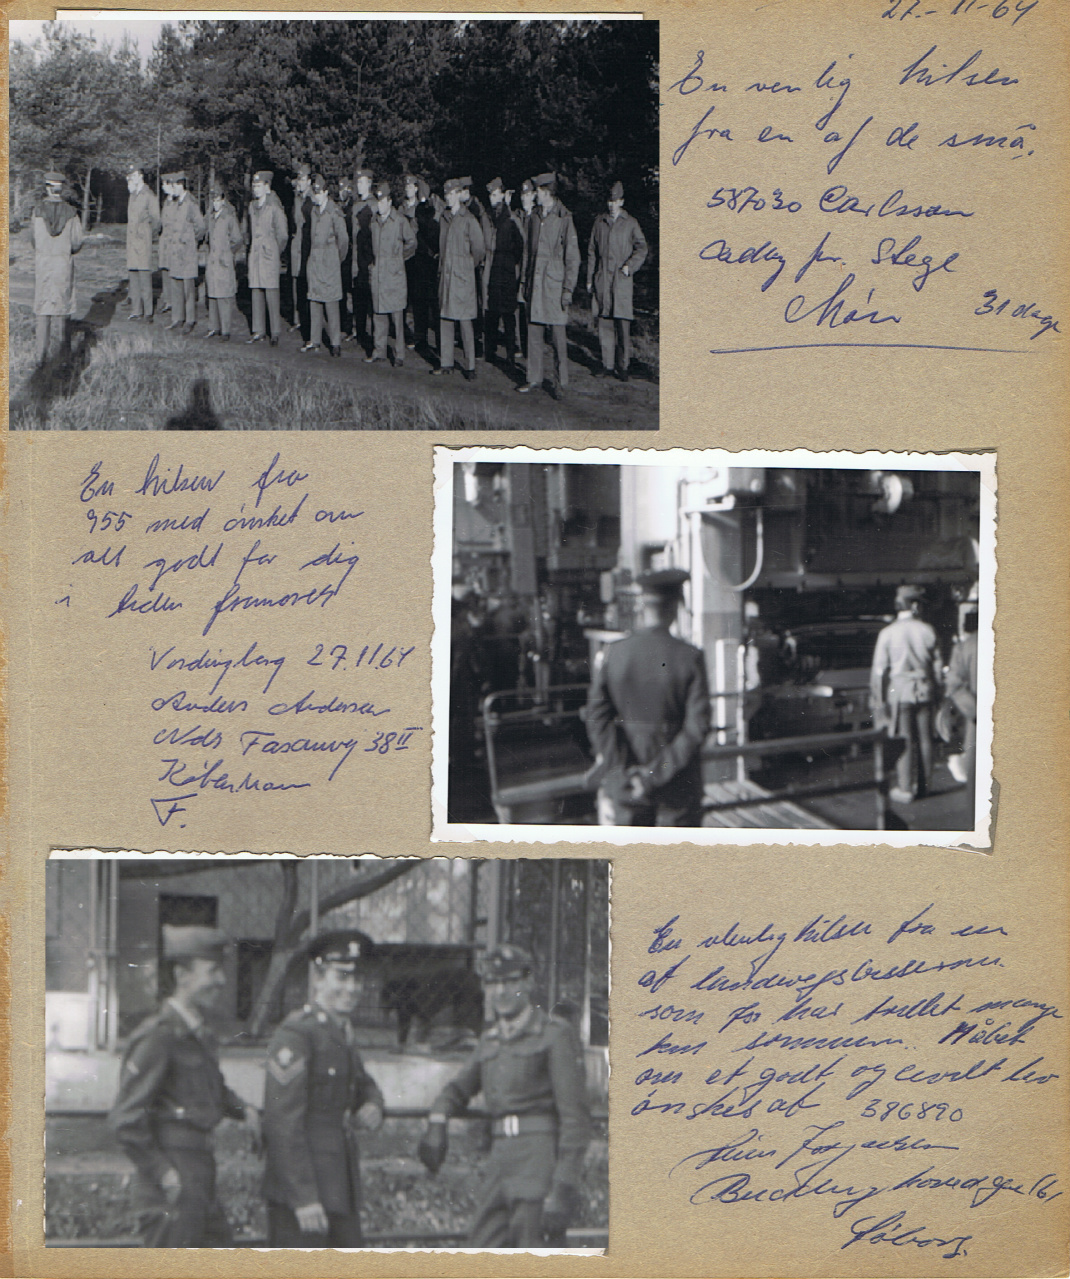 27.-11-64
En venlig hilsen
fra en af de små.
587030 Carlsson
pr. Stege
Møn 31 dage
En hilsen fra
955 med ønsket om
alt godt for dig
i tiden fremover
Vordingborg 27.11.64
Anders Andersen
Ndr Fasanvej 38 II
København
F.
En venlig hilsen fra en
af
som har trillet mange
km sammen. Håbet
om et godt og civilt liv
ønskes af 386890
Jørgensen
Søborg.